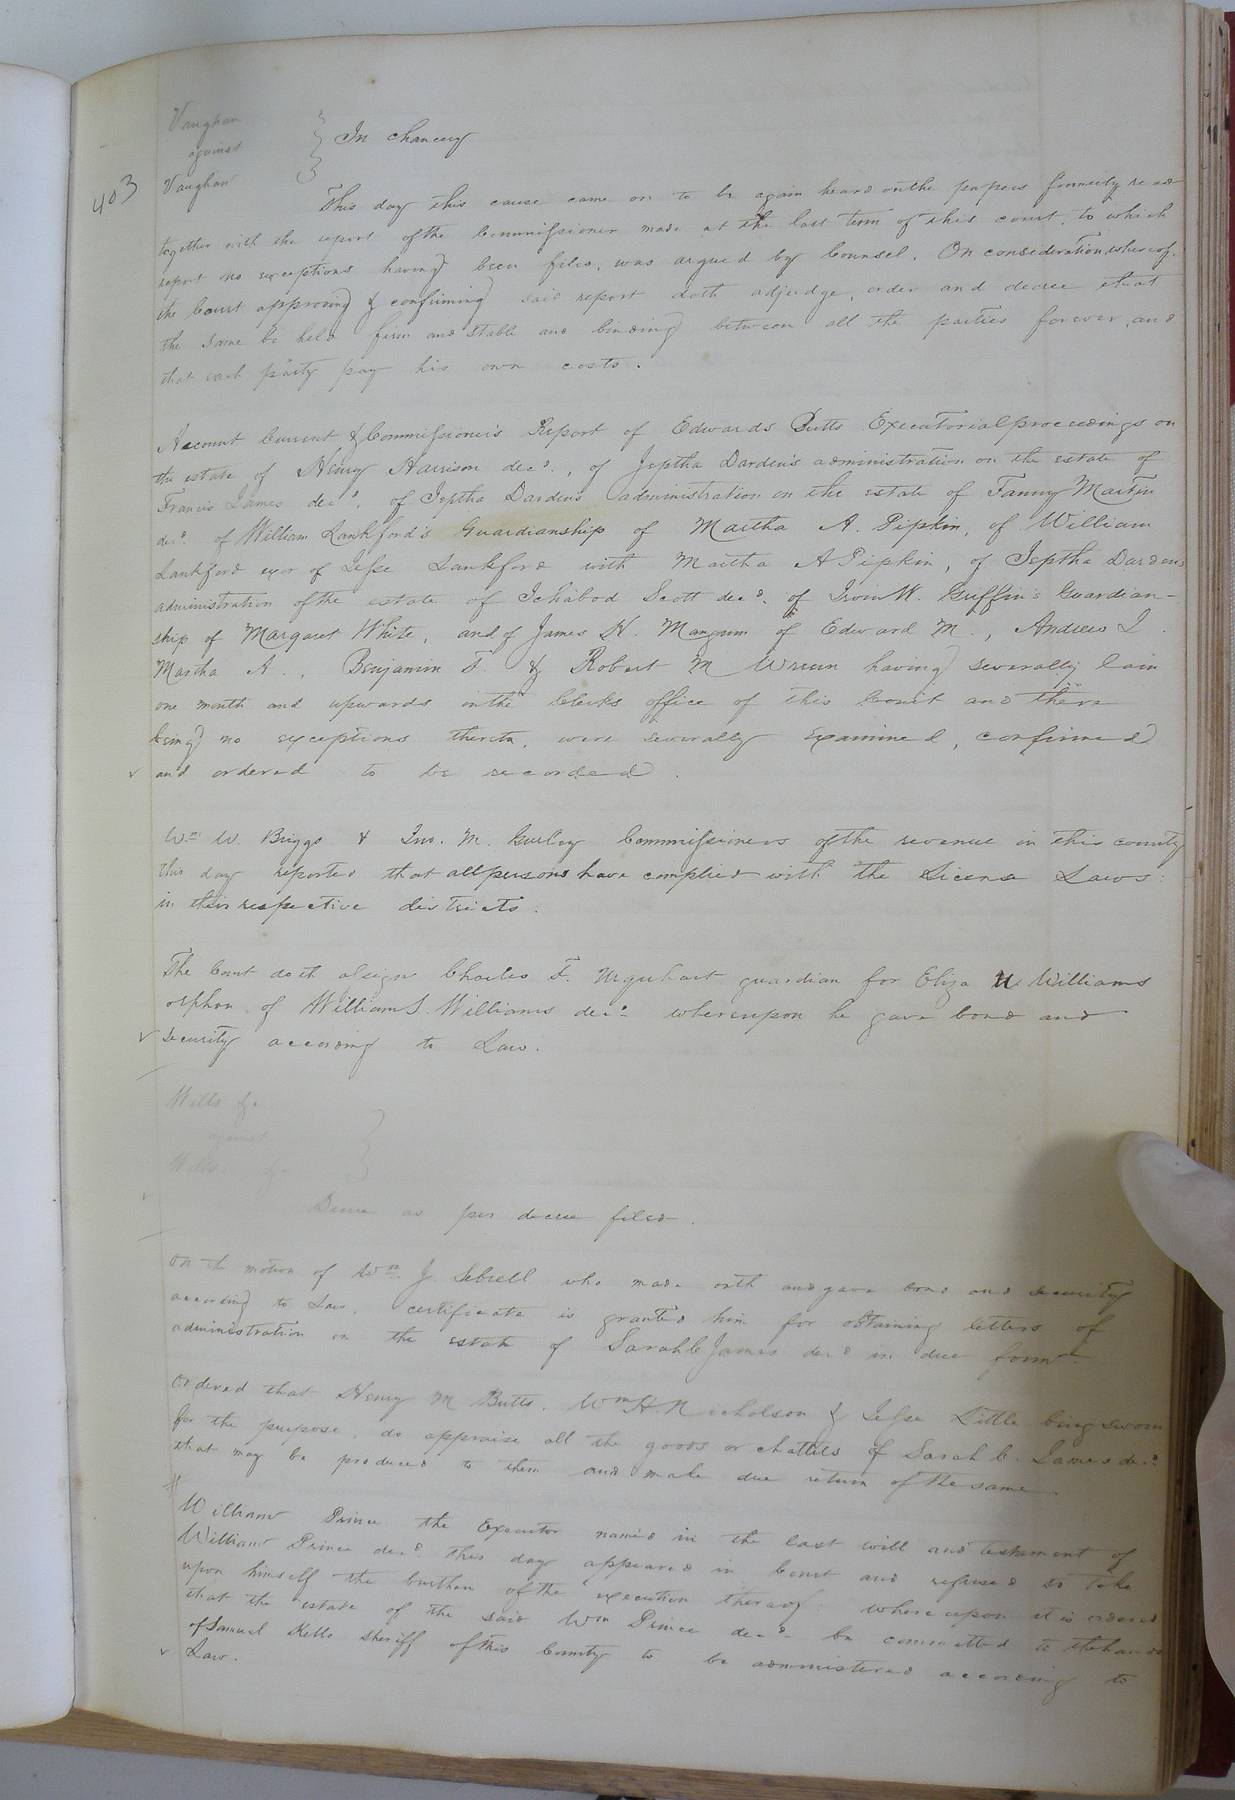 Vaughan
against
Vaughan
In chancery
403
This day this cause came on to be again heard on the papers formerly read
together with the report of the Commissioner made at the last term of this court, to which
report no exceptions having been filed, was argued by Counsel. On consideration whereof,
the Court approving & confirming said report doth adjudge, order and decree that
the same be held firm and stable and binding between all the parties forever, and
that each party pay his own costs.
Account Current & Commissioner's Report of Edwards Butts Executorial proceedings on
the estate of Henry Harrison decd., of Jeptha Darden's administration on the estate of
Francis James decd., of Jeptha Darden's administration on the estate of Fanny Martin
decd. of William Lankford's Guardianship of Martha A. Pipkin, of William
Lankford exor of Jesse Lankford with Martha A Pipkin, of Jeptha Dardens
administration of the estate of Ichabod Scott decd. of Irvin W. Griffin's Guardian-
ship of Margaret White, and of James H. Mangum of Edward M., Andrew J.
Martha A., Benjamin F. & Robert M Wrenn having severally lain
one month and upwards in the Clerk's office of this Court and there
being no exceptions thereto, were severally examined, confirmed
and ordered to be recorded.
Wm W. Briggs & Jno. M. Gurley Commissioners of the revenue in this county
this day reported that all persons have complied with the License Laws
in their respective districts.
The Court doth assign Charles F. Urquhart guardian for Eliza Williams
orphan of William S. Williams decd. whereupon he gave bond and
security according to Law.
Wills &c
against
Wills &c
Decree as per decree filed.
On the motion of Wm J. Sebrell who made oath and gave bond and security
according to Law, certificate is granted him for obtaining letters of
administration on the estate of Sarah C James decd in due form.
Ordered that Henry M Butts, Wm H Nicholson & Jesse Little being sworn
for the purpose, do appraise all the goods or chattels of Sarah C. James decd.
that may be produced to them and make due return of the same.
William Prince the Executor named in the last will and testament of
William Prince decd. this day appeared in Court and refused to take
upon himself the burthen of the execution thereof: whereupon it is ordered
that the estate of the said Wm Prince decd. be committed to the hands
of Samuel Kello Sheriff of this County to be administered according to
Law.